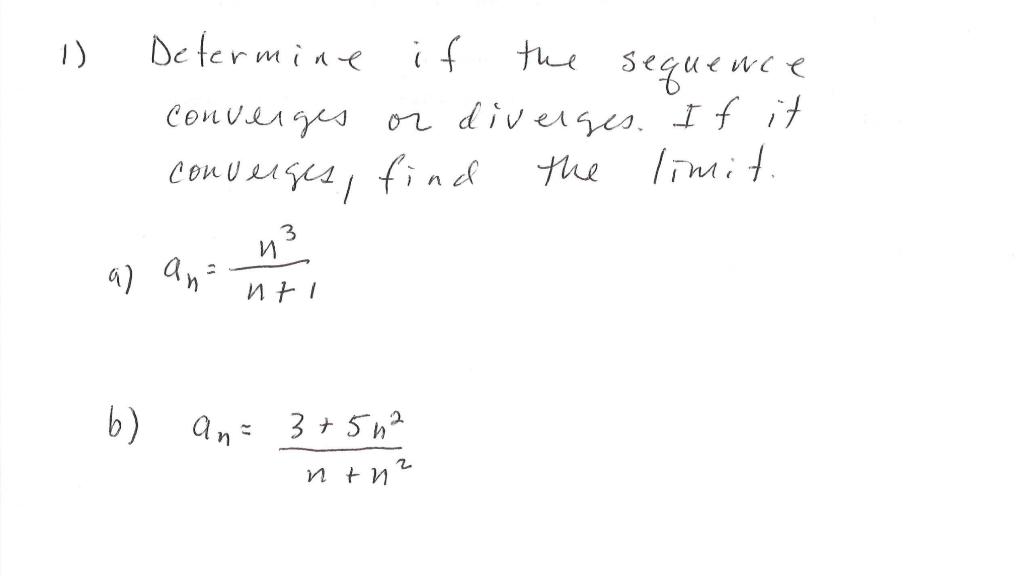 1) Determine if the sequence
converges or diverges. If it
converges, find the limit.
a) aₙ = n³
n + 1
b) aₙ = 3 + 5n²
n + n²